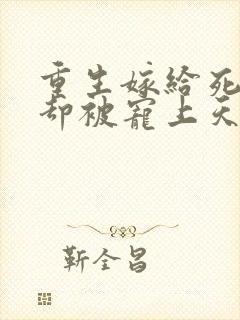 重生嫁给死
却被宠上天
靳全昌